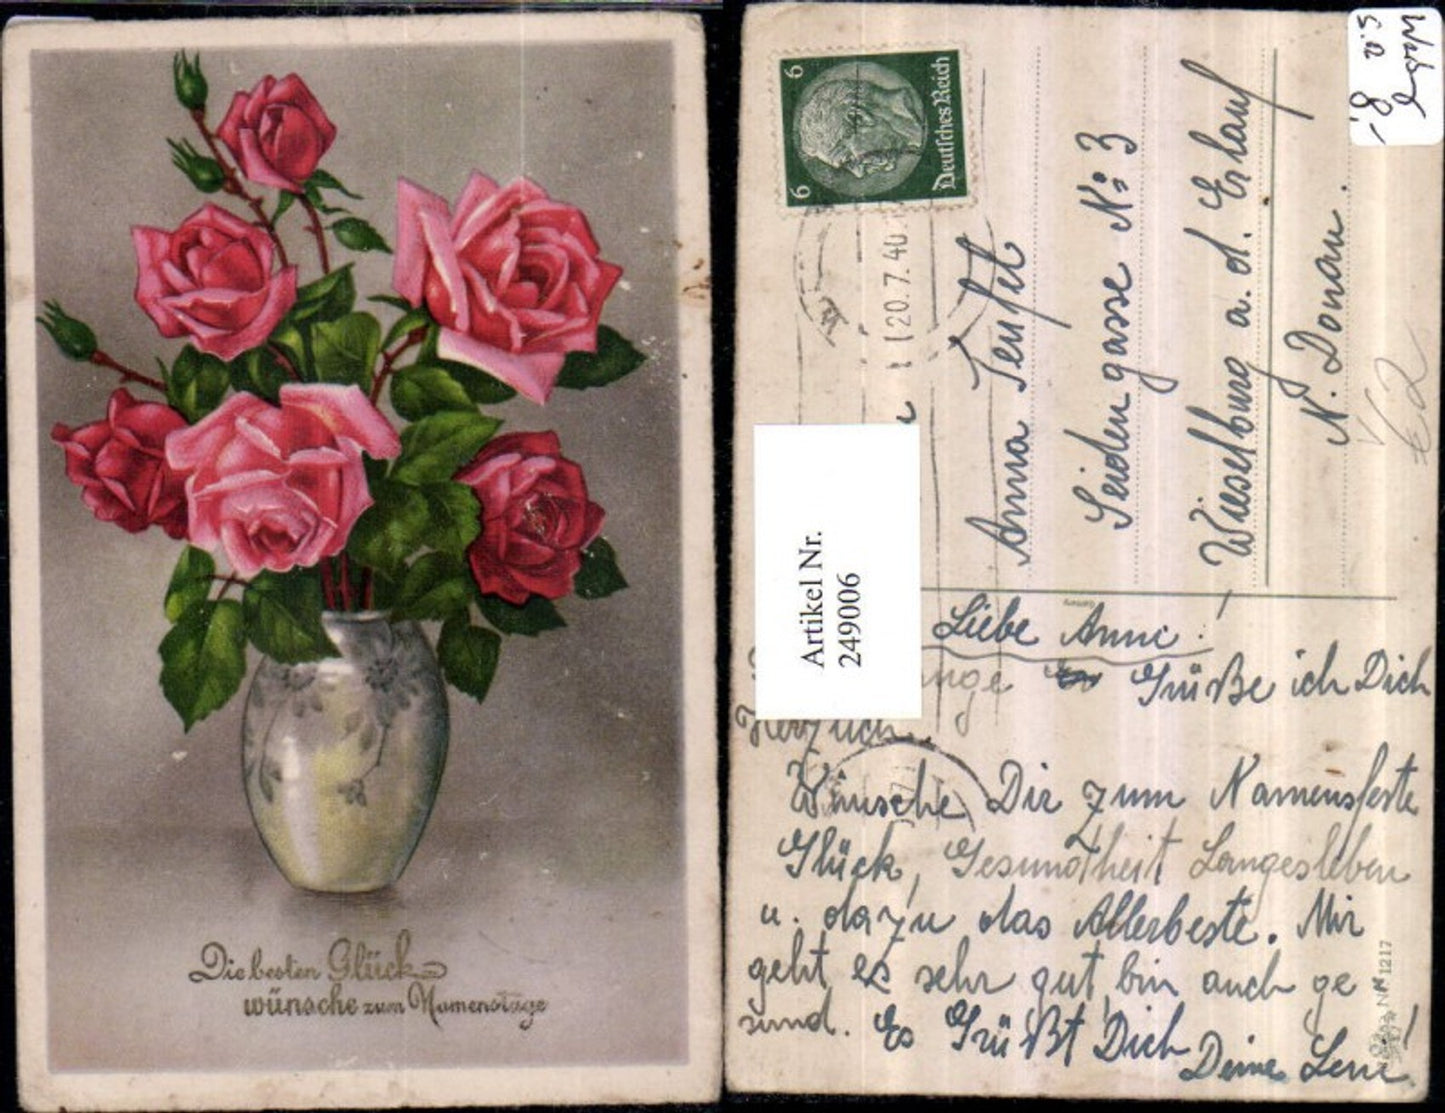 Die besten Glück-
wünsche zum Namenstage
6 6
Deutsches Reich
20.7.40
Artikel Nr.
249006
Anna Teufel
Seidengasse No 3
Wieselburg a. d. Erlauf
N. Donau.
€2
Liebe Anni!
Grüße ich Dich
Herzlich.
Wünsche Dir zum Namensfeste
Glück, Gesundheit Langesleben
u. dazu das Allerbeste. Mir
geht es sehr gut, bin auch ge
sund. Es Grüßt Dich
Deine Leni
No 1217